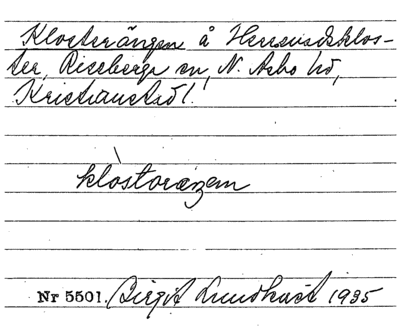 Klosterängen å Herrevadsklos-
ter, Riseberga sn, N. Åsbo hd,
Kristianstad l.
klòstoræŋen
Nr 5501. Birgit Lundkvist 1935